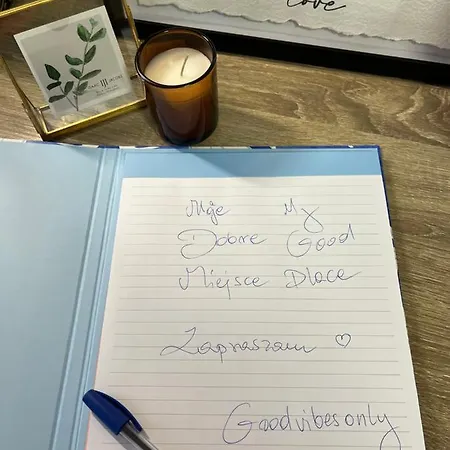 love
Moje My
Dobre Good
Miejsce Place
Zapraszam ♡
Goodvibesonly